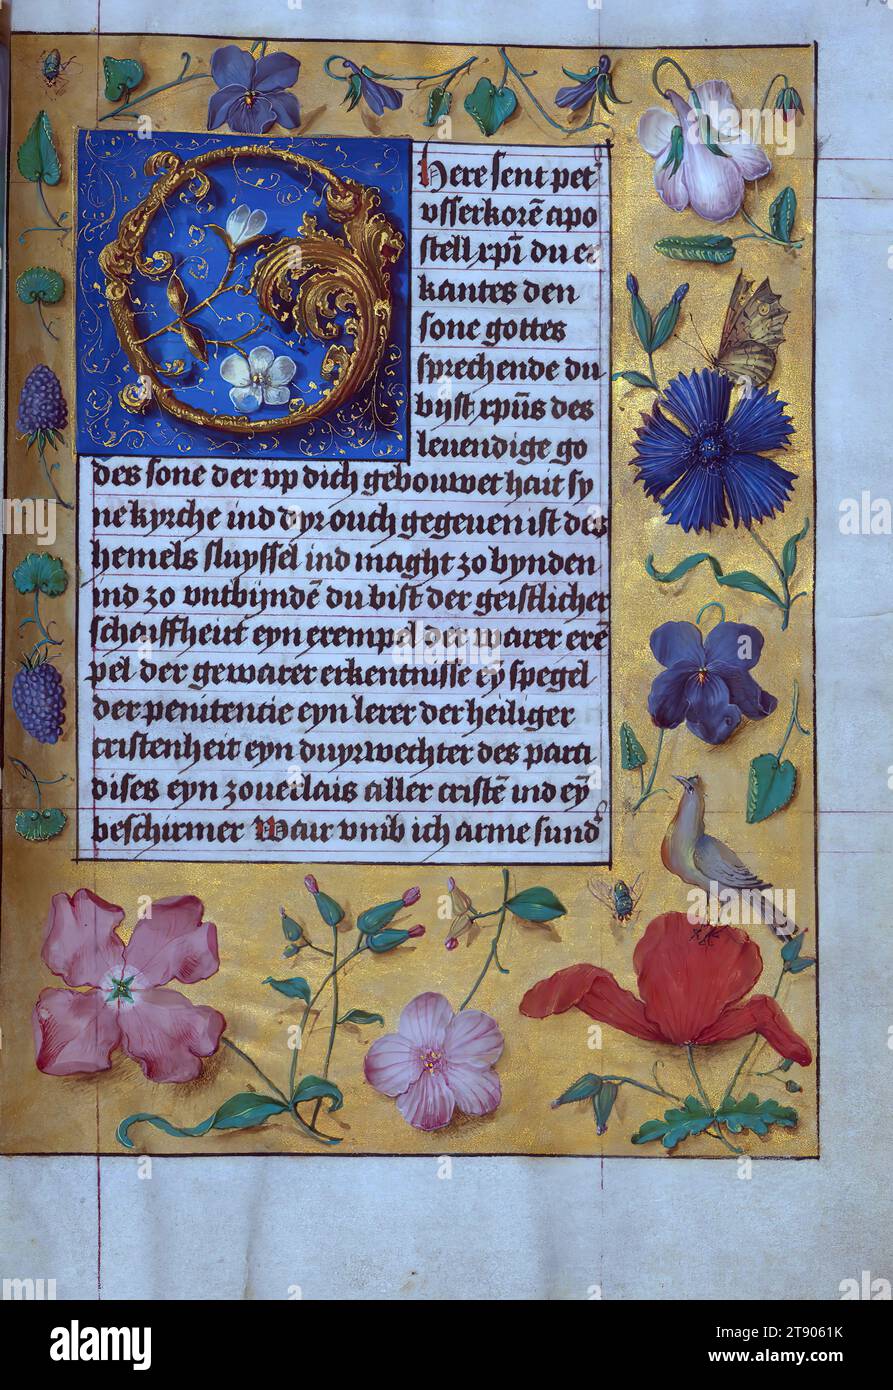 O here sent pet
vsserkorē apo
stell xpī du er
kantes den
sone gottes
sprechende du
byst xpūs des
leuendige go
des sone der vp dich gebouwet hait sy
ne kyrche ind dyr ouch gegeuen ist des
hemels sluyssel ind maght zo bynden
ind zo vntbijndē du bist der geistlicher
schaiffheirt eyn exempel der warer exē
pel der gewarer erkentnisse eȳ spegel
der penitencie eyn lerer der heiliger
cristenheit eyn duyrwechter des para
dises eyn zouerlais aller cristē ind eȳ
beschirmer Wair vmb ich arme sund
alamy
Image ID: 2T9061K
www.alamy.com